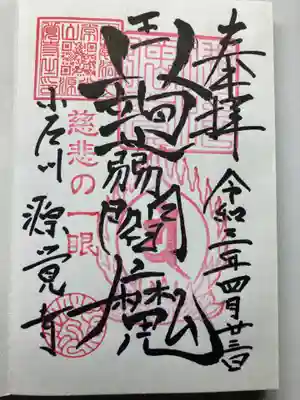 奉拝
令和三年四月廿三日
蒟蒻閻魔
王
慈悲の一眼
小石川 源覚寺